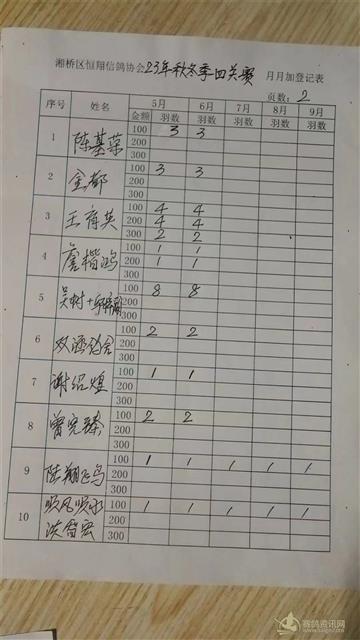 湘桥区恒翔信鸽协会23年秋冬季四关赛 月月加登记表
页数: 2
序号 姓名 5月 6月 7月 8月 9月
金额 羽数 羽数 羽数 羽数 羽数
1 陈基荣 100 3 3
200
300
2 金都 100 3 3
200
300
3 王育英 100 4 4
200 4 4
300 2 2
4 詹楷鸿 100 1 1
200 1 1
300
5 吴树+ 100 8 8
200
300
6 双涵鸽舍 100 2 2
200
300
7 谢绍煌 100 1 1
200
300
8 曾宪 100 2 2
200
300
9 陆翔飞鸟 100 1 1 1 1 1
200
300
10 顺风顺水 100 1 1 1 1 1
洪 宏 200
300
赛鸽资讯网